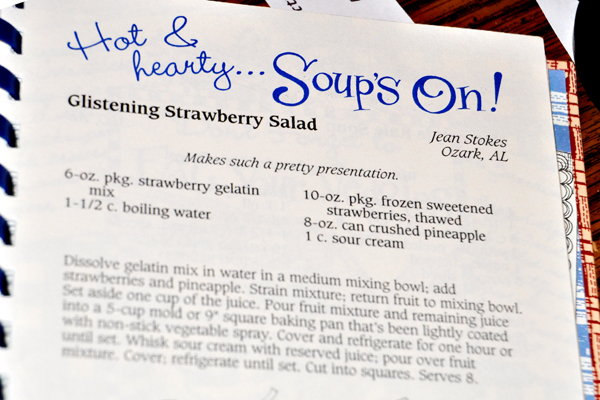 Hot &
hearty... Soup's On!
Glistening Strawberry Salad
Jean Stokes
Ozark, AL
Makes such a pretty presentation.
6-oz. pkg. strawberry gelatin
mix
1-1/2 c. boiling water
10-oz. pkg. frozen sweetened
strawberries, thawed
8-oz. can crushed pineapple
1 c. sour cream
Dissolve gelatin mix in water in a medium mixing bowl; add
strawberries and pineapple. Strain mixture; return fruit to mixing bowl.
Set aside one cup of the juice. Pour fruit mixture and remaining juice
into a 5-cup mold or 9" square baking pan that's been lightly coated
with non-stick vegetable spray. Cover and refrigerate for one hour or
until set. Whisk sour cream with reserved juice; pour over fruit
mixture. Cover; refrigerate until set. Cut into squares. Serves 8.